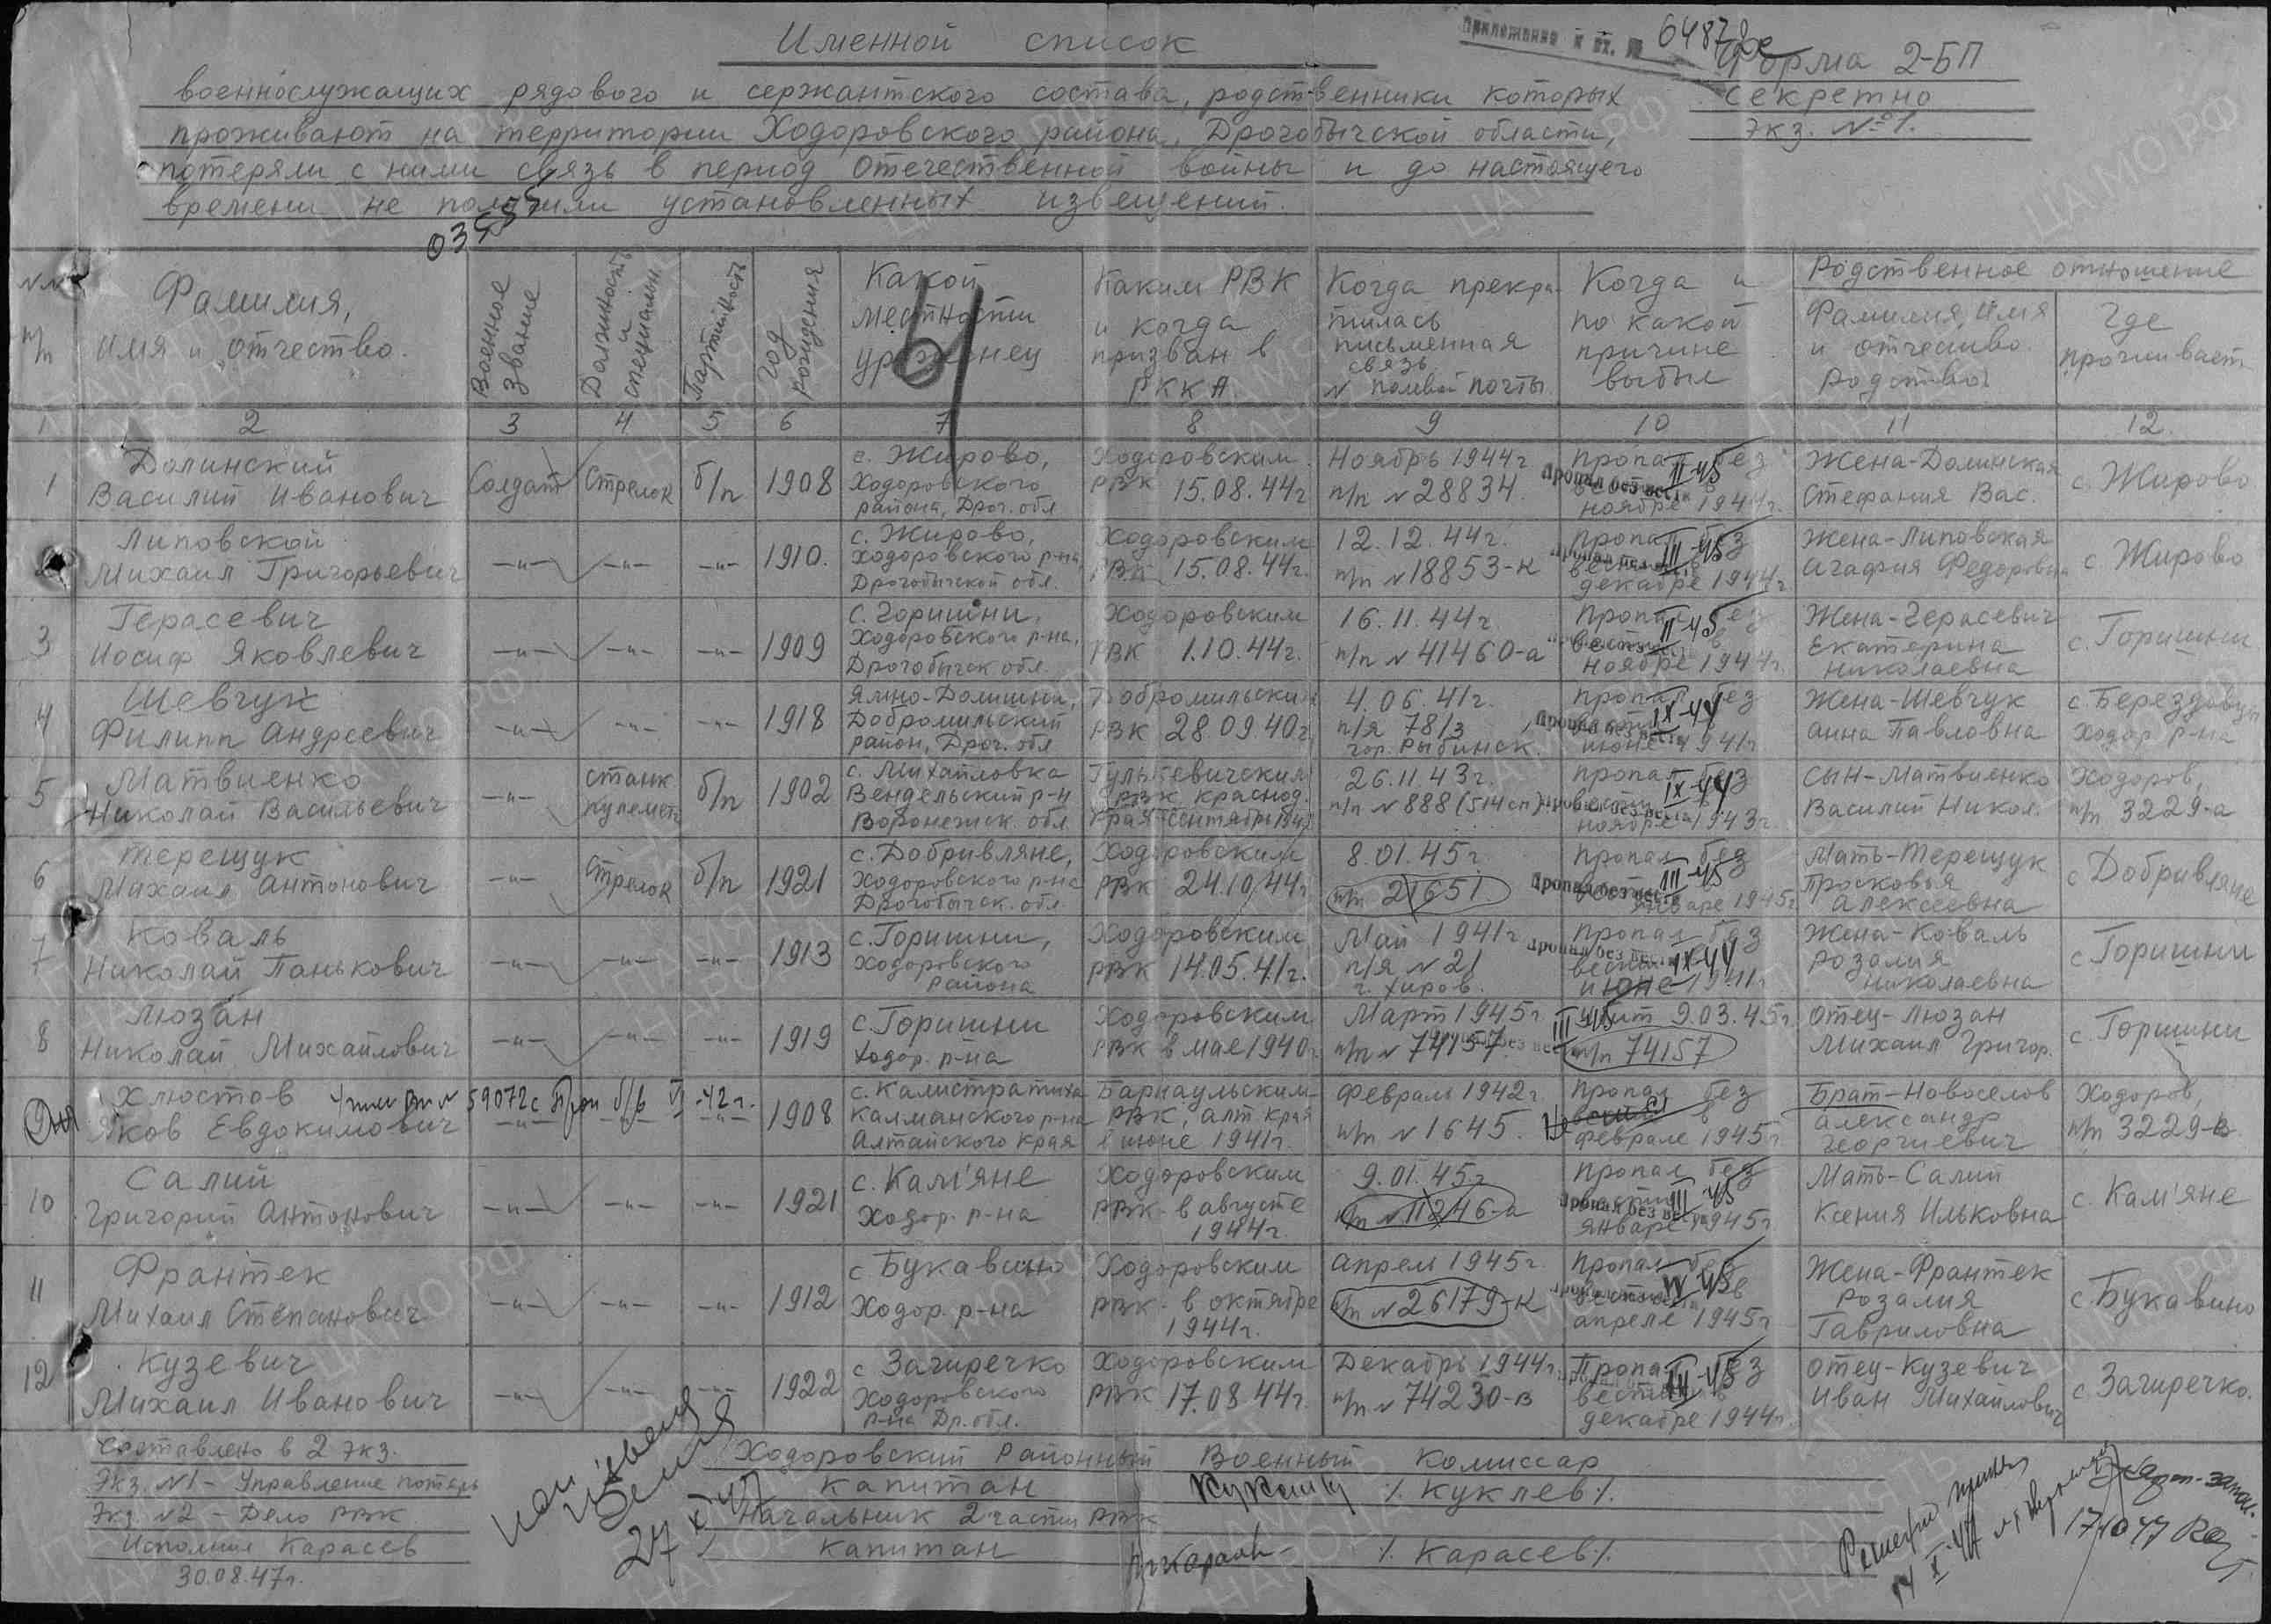 Именной список
Приложение к вх. № 64878с
Форма 2-БП
Секретно
Экз. №1.
военнослужащих рядового и сержантского состава, родственники которых
проживают на территории Ходоровского района, Дрогобычской области,
потеряли с ними связь в период Отечественной войны и до настоящего
времени не получили установленных извещений.
NN п/п
Фамилия, имя и отчество.
Военное звание
Должность и специальн.
Партийность
Год рождения
Какой местности уроженец
Каким РВК и когда призван в РККА
Когда прекратилась письменная связь N полевой почты
Когда и по какой причине выбыл
Родственное отношение
Фамилия, имя и отчество родство
Где проживает
1 2 3 4 5 6 7 8 9 10 11 12.
1 Долинский Василий Иванович Солдат Стрелок б/п 1908 с. Жирово, Ходоровского района, Дрог. обл Ходоровским РВК 15.08.44г Ноябрь 1944г п/п N 28834. пропал без вести ноябре 1944г. Пропал без вести II-45 Жена-Долинская Стефания Вас. с. Жирово
Липовской Михаил Григорьевич —"— —"— —"— 1910. с. Жирово, Ходоровского р-на, Дрогобычской обл. Ходоровским РВК 15.08.44г. 12.12.44г. п/п N 18853-к пропал без вести в декабре 1944г III-45 Жена-Липовская Агафия Федоровна с Жирово
3 Герасевич Иосиф Яковлевич —"— —"— —"— 1909 с. Горишни, Ходоровского р-на, Дрогобычск обл. Ходоровским РВК 1.10.44г. 16.11.44г. п/п N 41460-а Пропал без вести в ноябре 1944г. II-45 Жена-Герасевич Екатерина Николаевна с. Горишни
4 Шевчук Филипп Андреевич —"— —"— —"— 1918 Ямно-Долишни, Добромильский район, Дрог. обл Добромильским РВК 28.09.40г 4.06.41г. п/я 781/3 гор. Рыбинск пропал без июне 1941г. Пропал без вести IX-44 Жена-Шевчук Анна Павловна с. Бережд Ходор р-на
5 Матвиенко Николай Васильевич —"— станк пулеметч б/п 1902 с. Михайловка Вендельский р-н Воронежск. обл. Гулькевичским РВК Краснод. края сентябрь 26.11.43г. п/п N 888 (514 сп) пропал без вести ноябре 1943г. IX-44 сын-Матвиенко Василий Никол. Ходоров, п/п 3229-а
6 Терещук Михаил Антонович —"— Стрелок б/п 1921 с. Добривляне, Ходоровского р-на Дрогобычск. обл. Ходоровским РВК 24.10.44г 8.01.45г. п/п 21651. пропал без январе 1945г. Пропал без вести III-45 Мать-Терещук Просковья Алексеевна с Добривляне
7 Коваль Николай Панькович —"— —"— —"— 1913 с. Горишни, Ходоровского района Ходоровским РВК 14.05.41г. Май 1941г п/я N 21 г. Хиров. пропал без вести июне 1941г. Пропал без IX-44 Жена-Коваль Розалия Николаевна с Горишни
8 Люзан Николай Михайлович —"— —"— —"— 1919 с. Горишни Ходор. р-на Ходоровским РВК в мае 1940г Март 1945г п/п N 74157 Убит 9.03.45г. п/п 74157 III-45 Отец-Люзан Михаил Григор. с. Горишни
Хлюстов Яков Евдокимович 59072с Проп б/в -42г. —"— —"— —"— 1908 с. Калистратиха Калманского р-на Алтайского края Барнаульским РВК, Алт края в июне 1941г. Февраль 1942г. п/п N 1645. Пропал без вести в феврале 1945г Брат-Новоселов Александр Георгиевич Ходоров, п/п 3229-в.
10 Салий Григорий Антонович —"— —"— —"— 1921 с. Кам'яне Ходор. р-на Ходоровским РВК в августе 1944г. 9.01.45г п/п N 11246-а пропал без вести январе 1945г. Пропал без вести III 45 Мать-Салий Ксения Ильковна с. Кам'яне
11 Франтек Михаил Степанович —"— —"— —"— 1912 с Букавино Ходор. р-на Ходоровским РВК в октябре 1944г. Апрель 1945г. п/п N 26179-к пропал без вести в апреле 1945г Жена-Франтек Розалия Гавриловна с. Букавино
12 Кузевич Михаил Иванович —"— —"— —"— 1922 с Загиречко Ходоровского р-на Др. обл. Ходоровским РВК 17.08.44г. Декабрь 1944г. п/п N 74230-в Пропал без вести в декабре 1944г. III-45 Отец-Кузевич Иван Михайлович с. Загиречко.
Составлено в 2 экз.
Экз. N1 – Управление потерь
Экз. N2 – Дело РВК
Исполнил Карасев
30.08.47г.
Ходоровский Районный Военный Комиссар
Капитан /. Куклев /.
Начальник 2 части РВК
Капитан /. Карасев /.